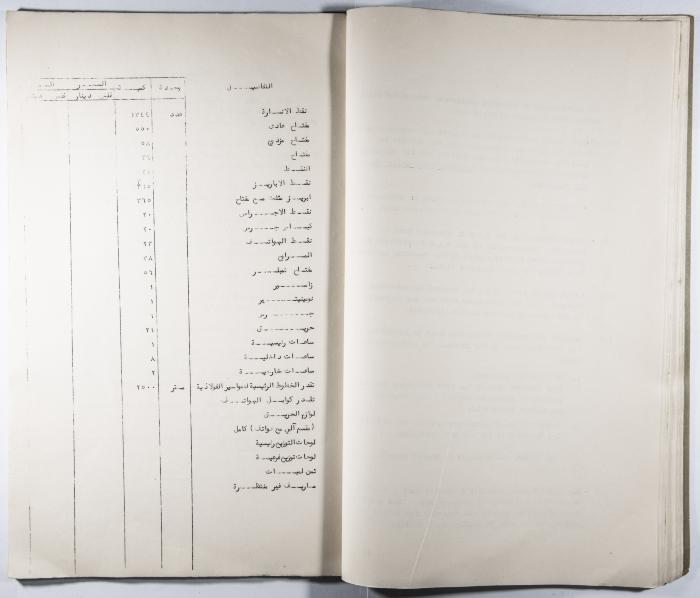 التفاصيـــــل وحدة كميـــة
فلس دينار فلس
نقط الانـــارة عدد ١٣٤٤
مفتـاح عادى ٥٥٠
مفتـاح مزدوج ٥٨
مفتـاح
النقـــط
نقـــط الاباريـــز
ابريـــز مفلت مع مفتاح ٣٦٥
نقـــط الاجـــراس ٢٠
كبـــاس جـــرس ٢٠
نقـــط الهواتـــف ٢٣
الصـــراى ٣٨
مفتـاح تيلفـــر ٥٦
زامـــــور ١
نومينيتـــــور ١
جـــــرس ١
حريـــــق ٢١
ساعـات رئيسيـــة ١
ساعـات داخليـــة ٨
ساعـات خارجيـــة ٢
تقدر الخطوط الرئيسية للمواسير الفولاذية متر ٢٥٠٠
تقـدر كوابـــل الهواتـــف
لوازم الحريـــق
(مقسم آلي مع هواتف) كامل
لوحات التوزيع رئيسية
لوحات توزيع فرعيـــة
ثمن لمبـــات
مصاريـــف غير منتظـــرة